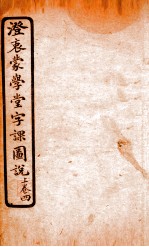 澄衷蒙學堂字課圖說
卷四上